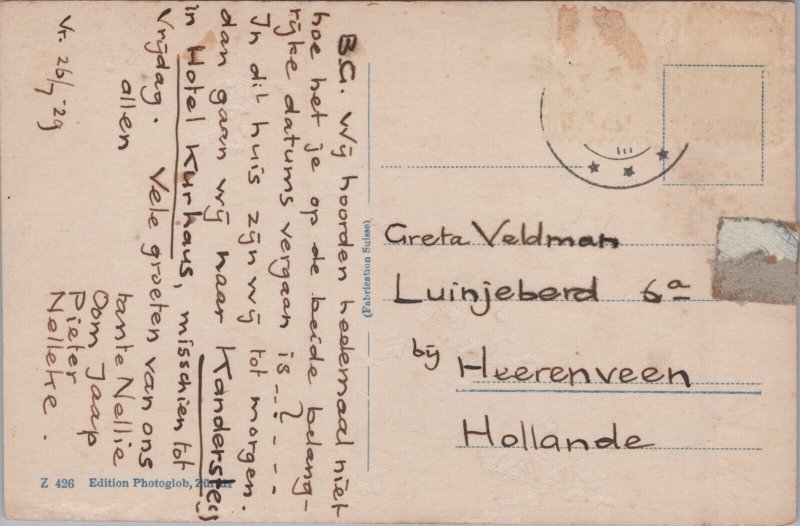 B.G. Wij hoorden heelemaal niet
hoe het je op de beide belang-
rijke datums vergaan is----?----
In dit huis zijn wij tot morgen.
dan gaan wij naar Kandersteg
in Hotel Kurhaus, misschien tot
Vrijdag. Vele groeten van ons
allen
tante Nellie
Oom Jaap
Pieter
Nelleke.
Vr. 26/7-29
(Fabrication Suisse)
Greta Veldman
Luinjeberd 6a
bij Heerenveen
Hollande
Z 426 Edition Photoglob, Zürich